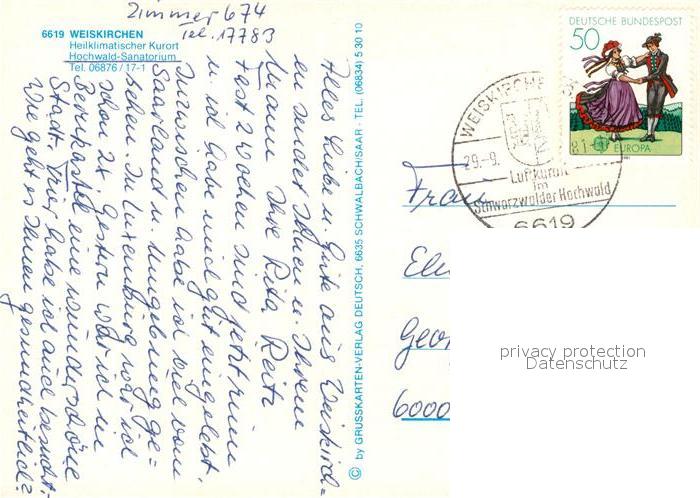 Zimmer 674
Tel. 17783
6619 WEISKIRCHEN
Heilklimatischer Kurort
Hochwald-Sanatorium
Tel. 06876 / 17-1
Alles Liebe u. Gute aus Weiskirch=
en sendet Ihnen u. Ihrem
Mann Ihre Rita Reitz
Fast 2 Wochen sind jetzt rum
u. ich habe mich gut eingelebt.
Inzwischen habe ich viel vom
Saarland u. Umgebung ge=
sehen. In Luxemburg war ich
schon 2x. Gestern war ich in
Bernkastel eine wunderschöne
Stadt. Trier habe ich auch besucht.
Wie geht es Ihnen gesundheitlich?
© by GRUSSKARTEN-VERLAG DEUTSCH, 6635 SCHWALBACH/SAAR · TEL. (06834) 5 30 10
DEUTSCHE BUNDESPOST
50
EUROPA
WEISKIRCHE
29.-9.
81-
Luftkurort
im
Schwarzwälder Hochwald
6619
Frau
Geor
6000
privacy protection
Datenschutz